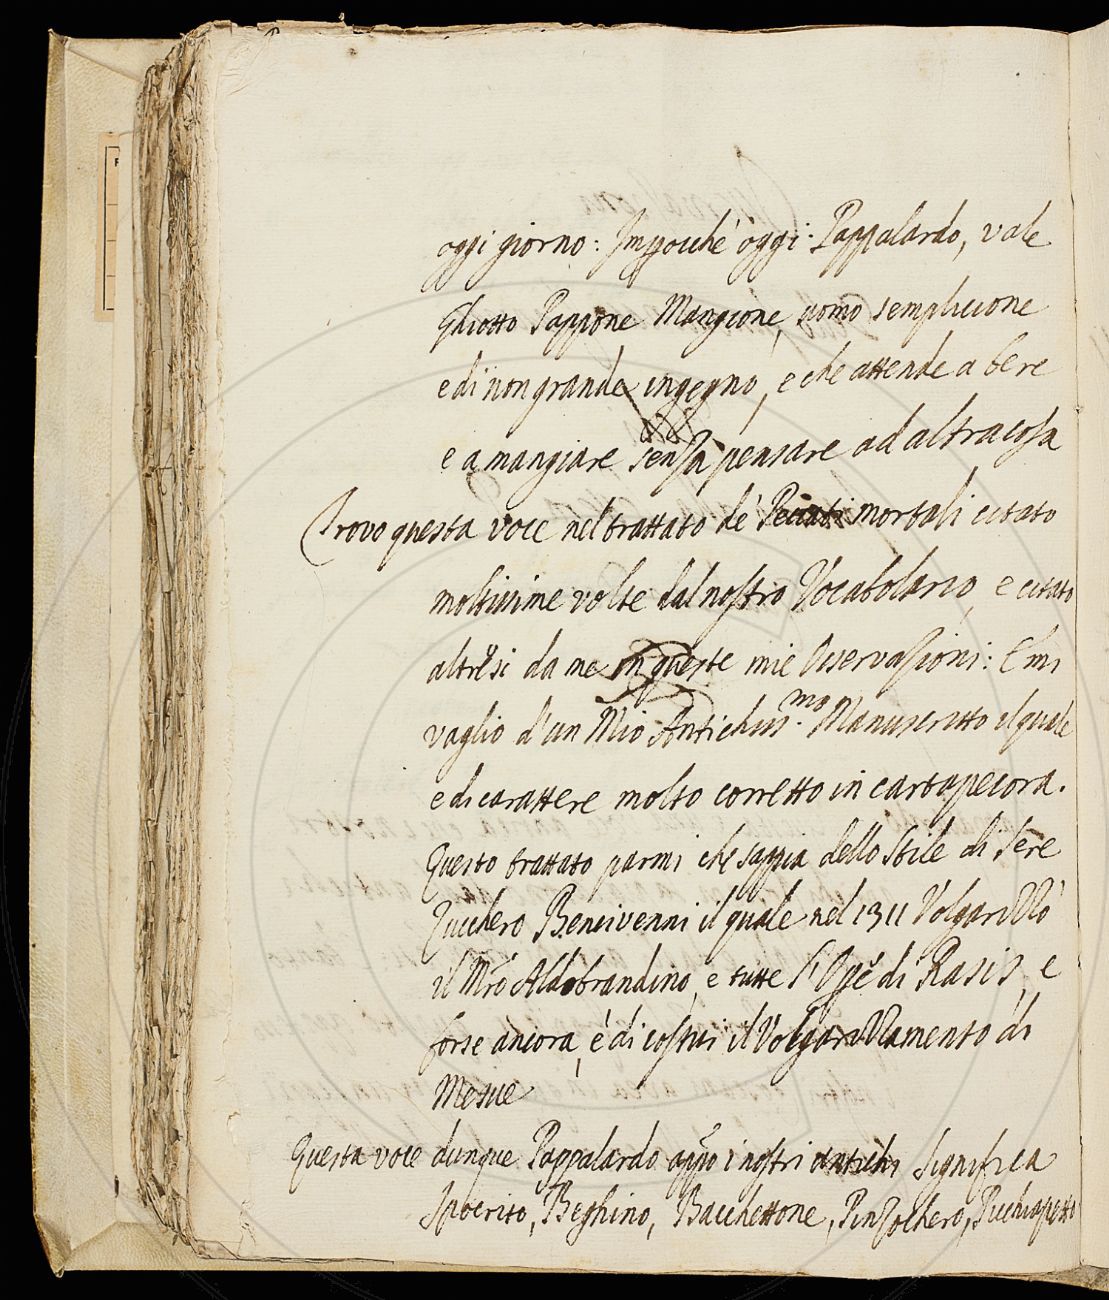 oggi giorno: Imperocché oggi Pappalardo, vale
Ghiotto Pappone Mangione, uomo semplicione
e di non grande ingegno, e che attende a bere
e a mangiare senza pensare ad altra cosa
Trovo questa voce nel trattato de' Peccati mortali citato
moltissime volte dal nostro Vocabolario, e citato
altresì da me in queste mie Osservazioni: E mi
vaglio d'un Mio Antichiss.mo Manuscritto il quale
e di carattere molto corretto in cartapecora.
Questo trattato parmi che sappia dello Stile di Sere
Zucchero Bencivenni il quale nel 1311 Volgarizzò
il Mro Aldobrandino, e tutte l'Ope di Rasis, e
forse ancora, è di costui il Volgarizzamento di
Mesue
Questa voce dunque Pappalardo appo i nostri antichi significa
Ipocrito, Beghino, Bacchettone, Pinzochero, Picchiapetto